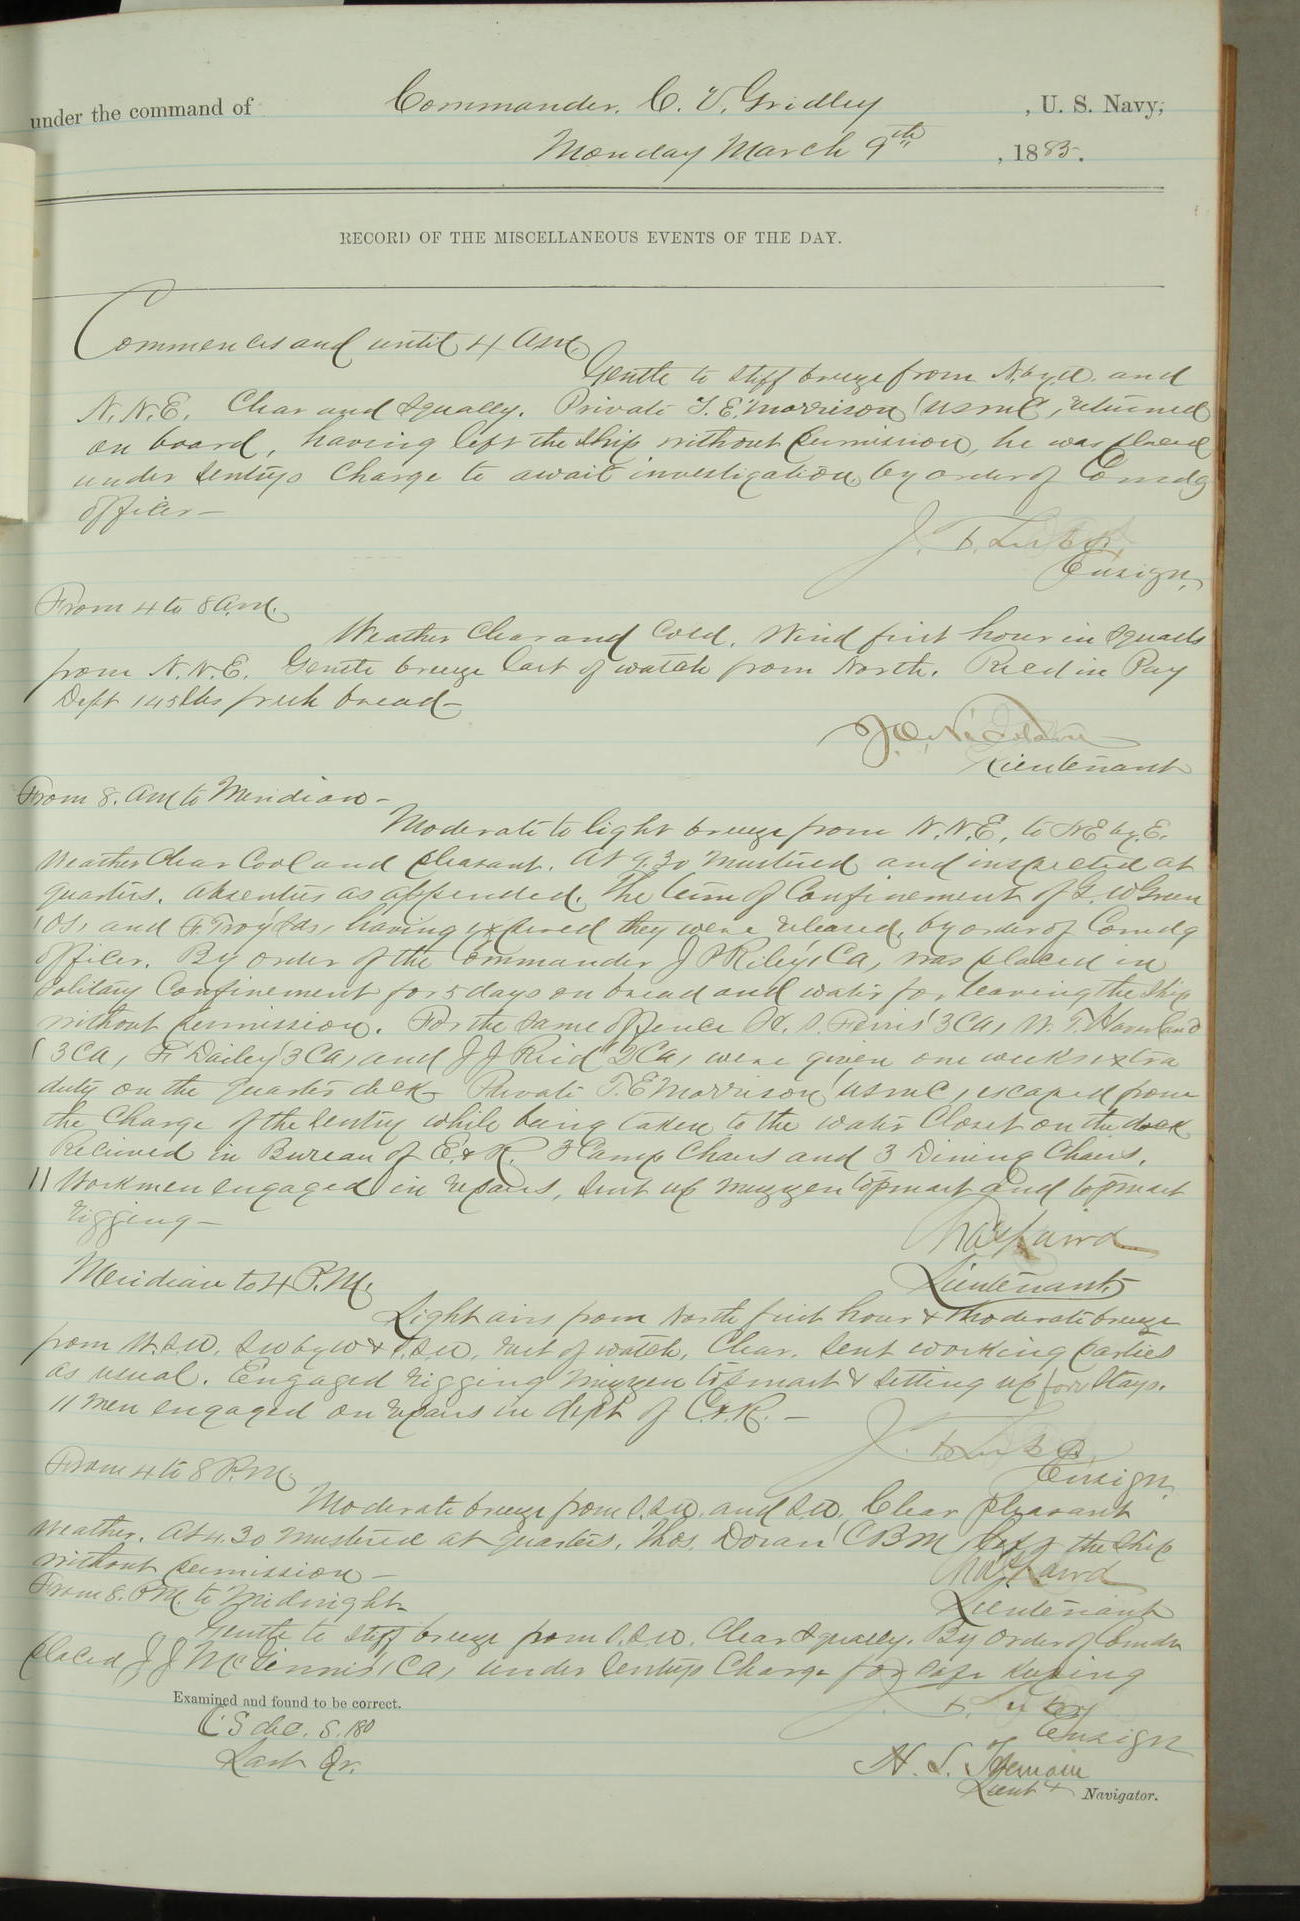 under the command of Commander. C. V. Gridley , U. S. Navy,
Monday March 9th , 1885.
RECORD OF THE MISCELLANEOUS EVENTS OF THE DAY.
Commences and until 4 A.M.
Gentle to stiff breeze from N. by E. and
N.N.E. Clear and squally. Private T. E. Morrison (USMC) returned
on board, having left the ship without permission, he was placed
under sentrys charge to await investigation by order of Comdg
officer—
Ensign.
From 4 to 8 A.M.
Weather Clear and Cold. Wind first hour in squalls
from N.N.E. Gentle breeze last of watch from North. Recd in Pay
Dept 145 lbs fresh bread—
Lieutenant
From 8. AM to Meridian—
Moderate to light breeze from N.N.E. to NE by. E.
Weather Clear Cool and pleasant. At 9.30 mustered and inspected at
quarters. absentees as appended. The term of Confinement of G. W Green
(OS) and F. Troy (Lds) having expired they were released, by order of Comdg
officer. By order of the Commander J P Riley (1CA) was placed in
Solitary Confinement for 5 days on bread and water for leaving the ship
without permission. For the same offence H. S. Ferris (3CA) W. T. Haverland
(3CA) F. Dailey (3CA) and J J Reid (2CA) were given one weeks extra
duty on the quarter deck. Private T. E Morrison (USMC) escaped from
the Charge of the Sentry while being taken to the water Closet on the dock
Received in Bureau of E. & R. 3 Camp Chairs and 3 Dining Chairs.
11 Workmen engaged in repairs, Sent up mizzen topmast and topmast
rigging—
Laird
Meridian to 4 P.M. Lieutenant
Light airs from North first hour & Moderate breeze
from W.S.W. SW by W & S.S.W. rest of watch. Clear. Sent working parties
as usual. Engaged rigging Mizzen topmast & setting up fore stays.
11 men engaged on repairs in dept of C. & R. —
Ensign
From 4 to 8 P.M.
Moderate breeze from S.S.W. and S.W. Clear pleasant
Weather. At 4.30 mustered at quarters. Thos. Doran (CBM) left the Ship
without permission— Laird
From 8. P.M. to Midnight— Lieutenant
Gentle to stiff breeze from S.S.W. Clear squally. By order of Comdr
placed J J McGinnis (1CA) under Sentrys Charge for safe keeping
Examined and found to be correct.
Ensign
Last Qr.
H. S.
Lieut & Navigator.